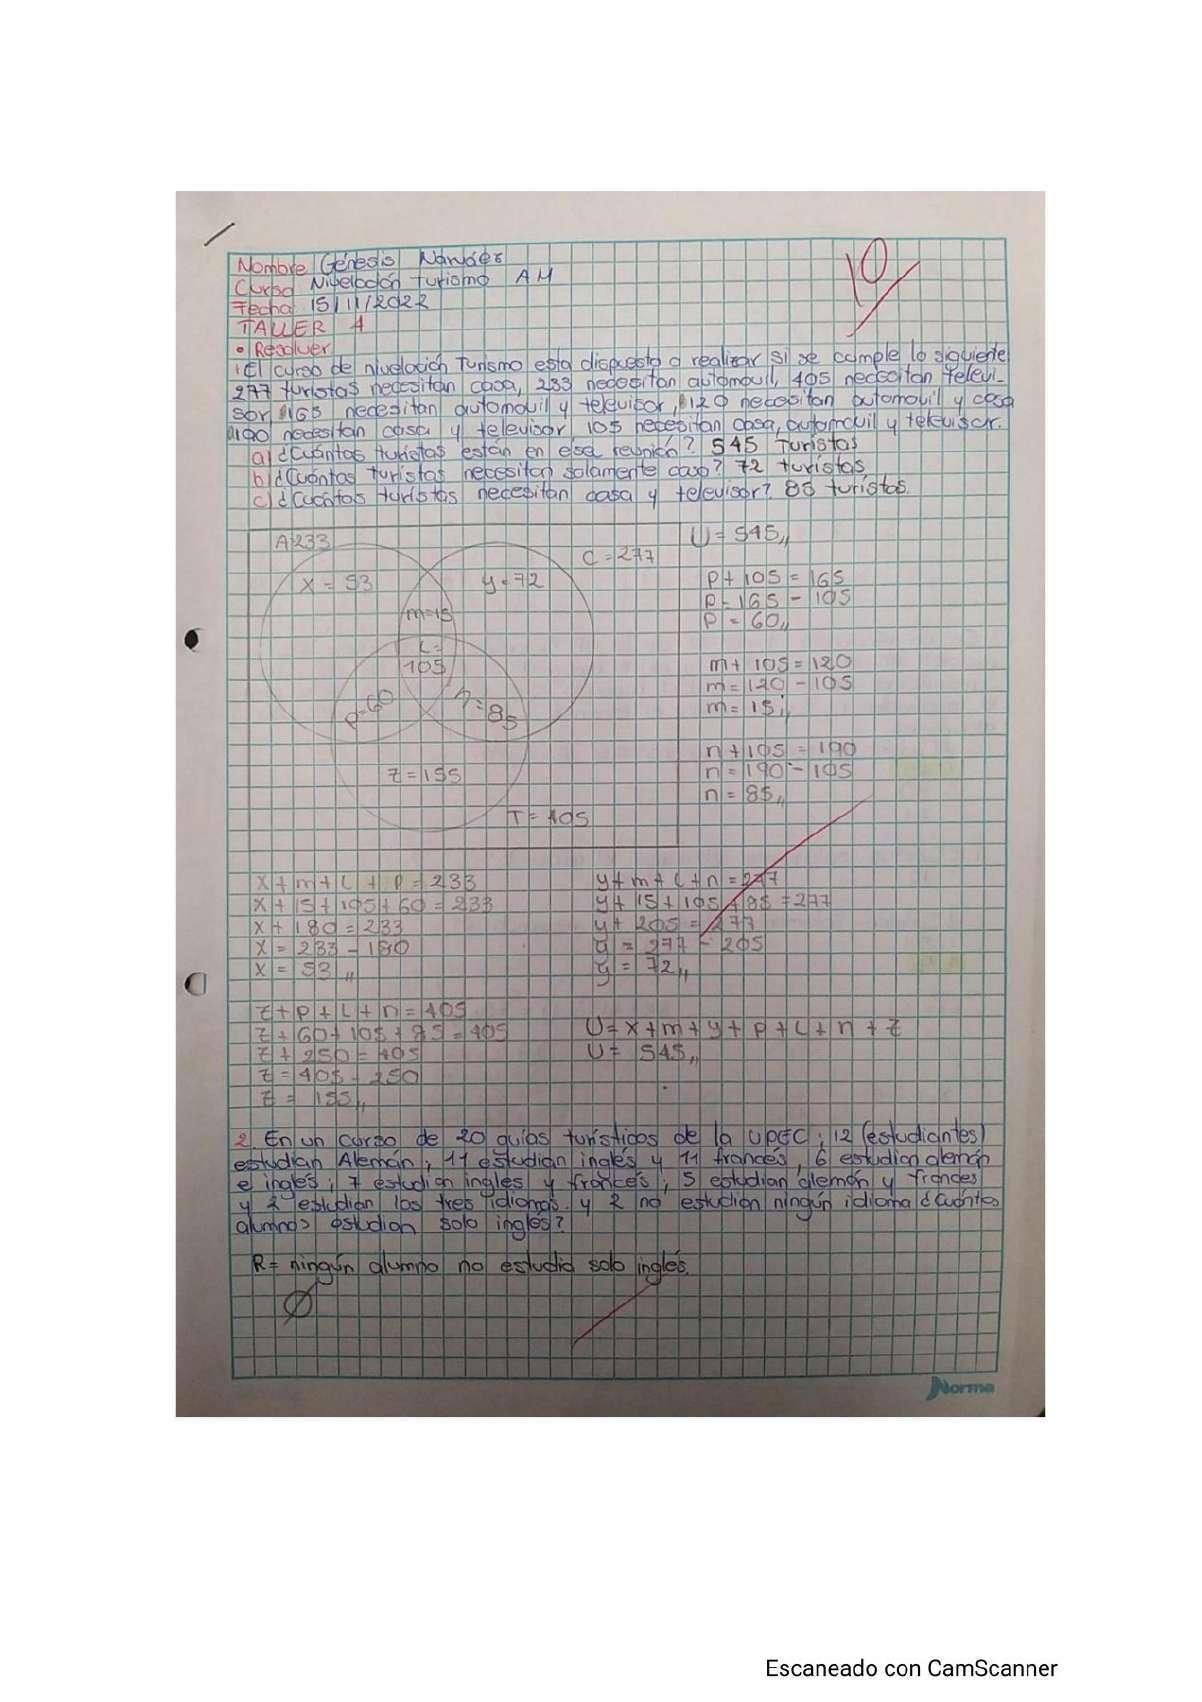 Nombre Génesis Narváez
Curso Nivelación Turismo AM
Fecha 15/11/2022
TALLER 1
• Resolver
10
1 El curso de nivelación Turismo esta dispuesta a realizar si se cumple lo siguiente
277 turistas necesitan casa, 233 necesitan automovil, 405 necesitan televi-
sor, 165 necesitan automovil y televisor, 120 necesitan automovil y casa
190 necesitan casa y televisor 105 necesitan casa, automovil y televisor.
a) ¿Cuántas turistas están en esa reunión? 545 Turistas
b) ¿Cuántas turistas necesitan solamente casa? 72 turistas
c) ¿Cuántas turistas necesitan casa y televisor? 85 turistas.
A=233
C = 277
X = 53
y = 72
m=15
L=
105
p=60
n=85
Z = 155
T = 405
U = 545,,
p + 105 = 165
p = 165 - 105
p = 60,,
m + 105 = 120
m = 120 - 105
m = 15,,
n + 105 = 190
n = 190 - 105
n = 85,,
X + m + L + p = 233
X + 15 + 105 + 60 = 233
X + 180 = 233
X = 233 - 180
X = 53,,
y + m + L + n = 277
y + 15 + 105 + 85 = 277
y + 205 = 277
y = 277 - 205
y = 72,,
Z + p + L + n = 405
Z + 60 + 105 + 85 = 405
Z + 250 = 405
Z = 405 - 250
Z = 155,,
U = x + m + y + p + L + n + z
U = 545,,
2 En un curso de 20 guías turísticos de la UPEC; 12 (estudiantes)
estudian Alemán, 11 estudian inglés y 11 francés, 6 estudian alemán
e inglés; 7 estudian inglés y francés, 5 estudian alemán y frances
y 2 estudian los tres idiomas. y 2 no estudian ningún idioma ¿Cuántos
alumnos estudian solo inglés?
R = ningún alumno no estudia solo inglés.
Ø
Norma
Escaneado con CamScanner